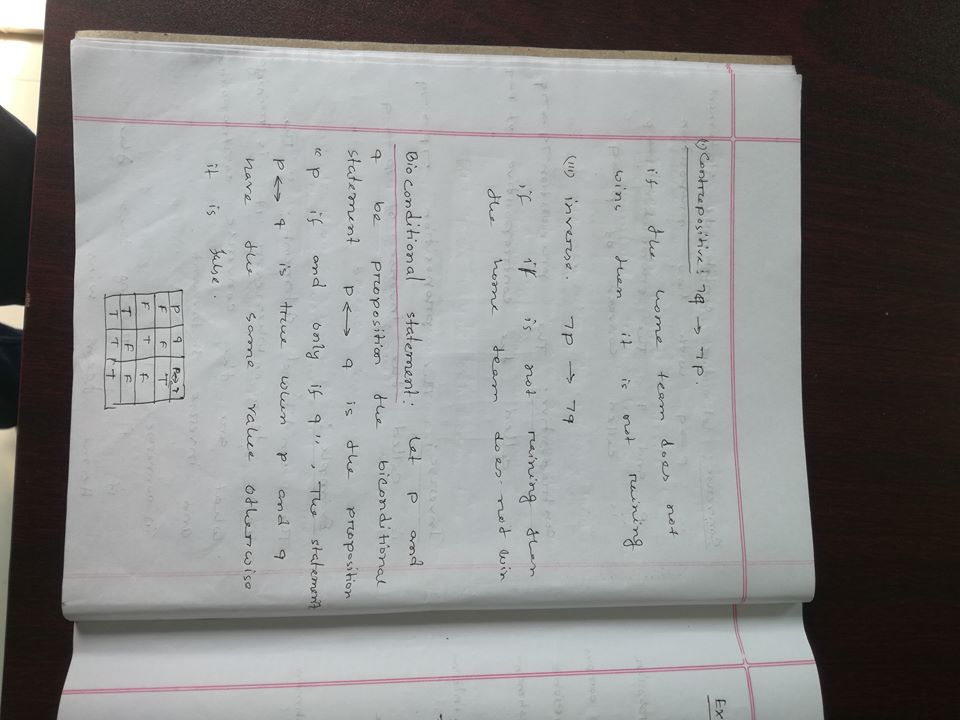 (i) Contrapositive: ¬q → ¬p.
if the home team does not
wins then it is not raining
(iii) inverse. ¬p → ¬q
if it is not raining then
the home team does not win
Bioconditional statement: Let p and
q be proposition the biconditional
statement p ↔ q is the proposition
"p if and only if q". The statement
p ↔ q is true when p and q
have the same value otherwise
it is false.
p q p↔q
F F T
F T F
T F F
T T T
Ex